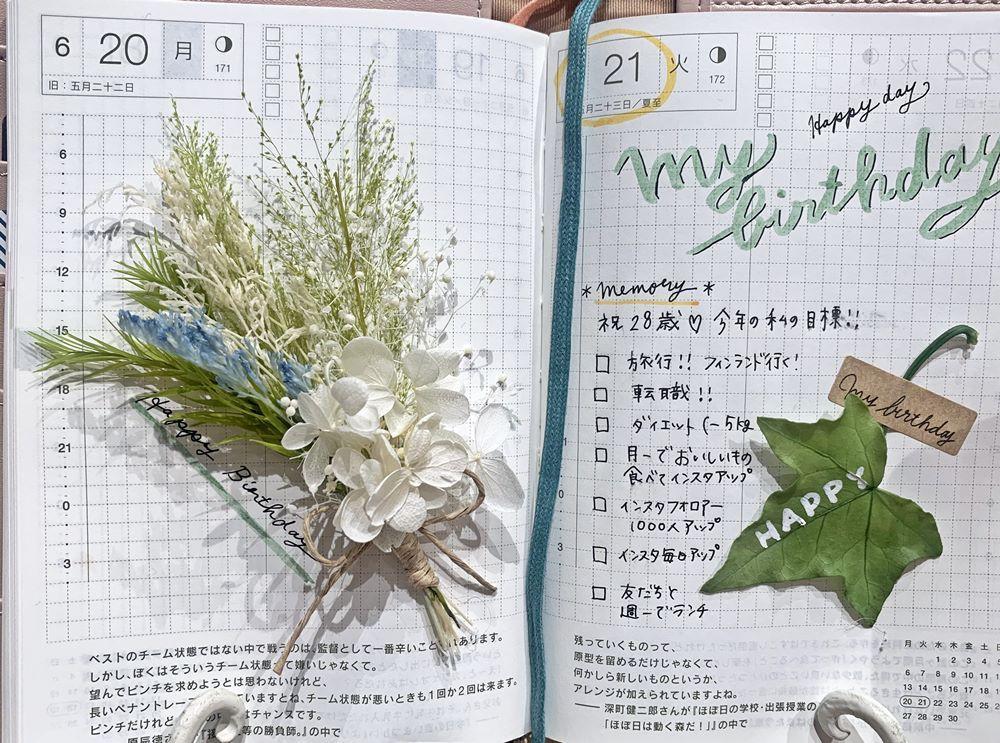 6 20 月
171
旧：五月二十二日
6
9
12
15
18
21
0
3
Happy Birthday
ベストのチーム状態ではない中で戦うのは、監督として一番辛いこと あります。
しかし、ぼくはそういうチーム状態 て嫌いじゃなくて。
望んでピンチを求めようとは思わないけれど、
長いペナントレー ていますとね、チーム状態が悪いときも1回か2回は来ます。
ピンチだけれど はチャンスです。
等の勝負師。』の中で
21 火
172
月二十三日／夏至
Happy day
my
birthday
＊memory＊
祝28歳♡ 今年の私の目標!!
□ 旅行!! フィンランド行く!
□ 転職!!
□ ダイエット (－5kg
□ 月一でおいしいもの
食べてインスタアップ
□ インスタフォロアー
1000人アップ
□ インスタ毎日アップ
□ 友だちと
週一でランチ
My birthday
HAPPY
残っていくものって、
原型を留めるだけじゃなくて、
何かしら新しいものというか、
アレンジが加えられていますよね。
── 深町健二郎さんが『ほぼ日の学校・出張授業の
「ほぼ日は動く森だ！」』の中で
月 火 水 木 金 土 日
1 2 3 4
6 7 8 9 10 11
13 14 15 16 17 18
20 21 22 23 24 25
27 28 29 30